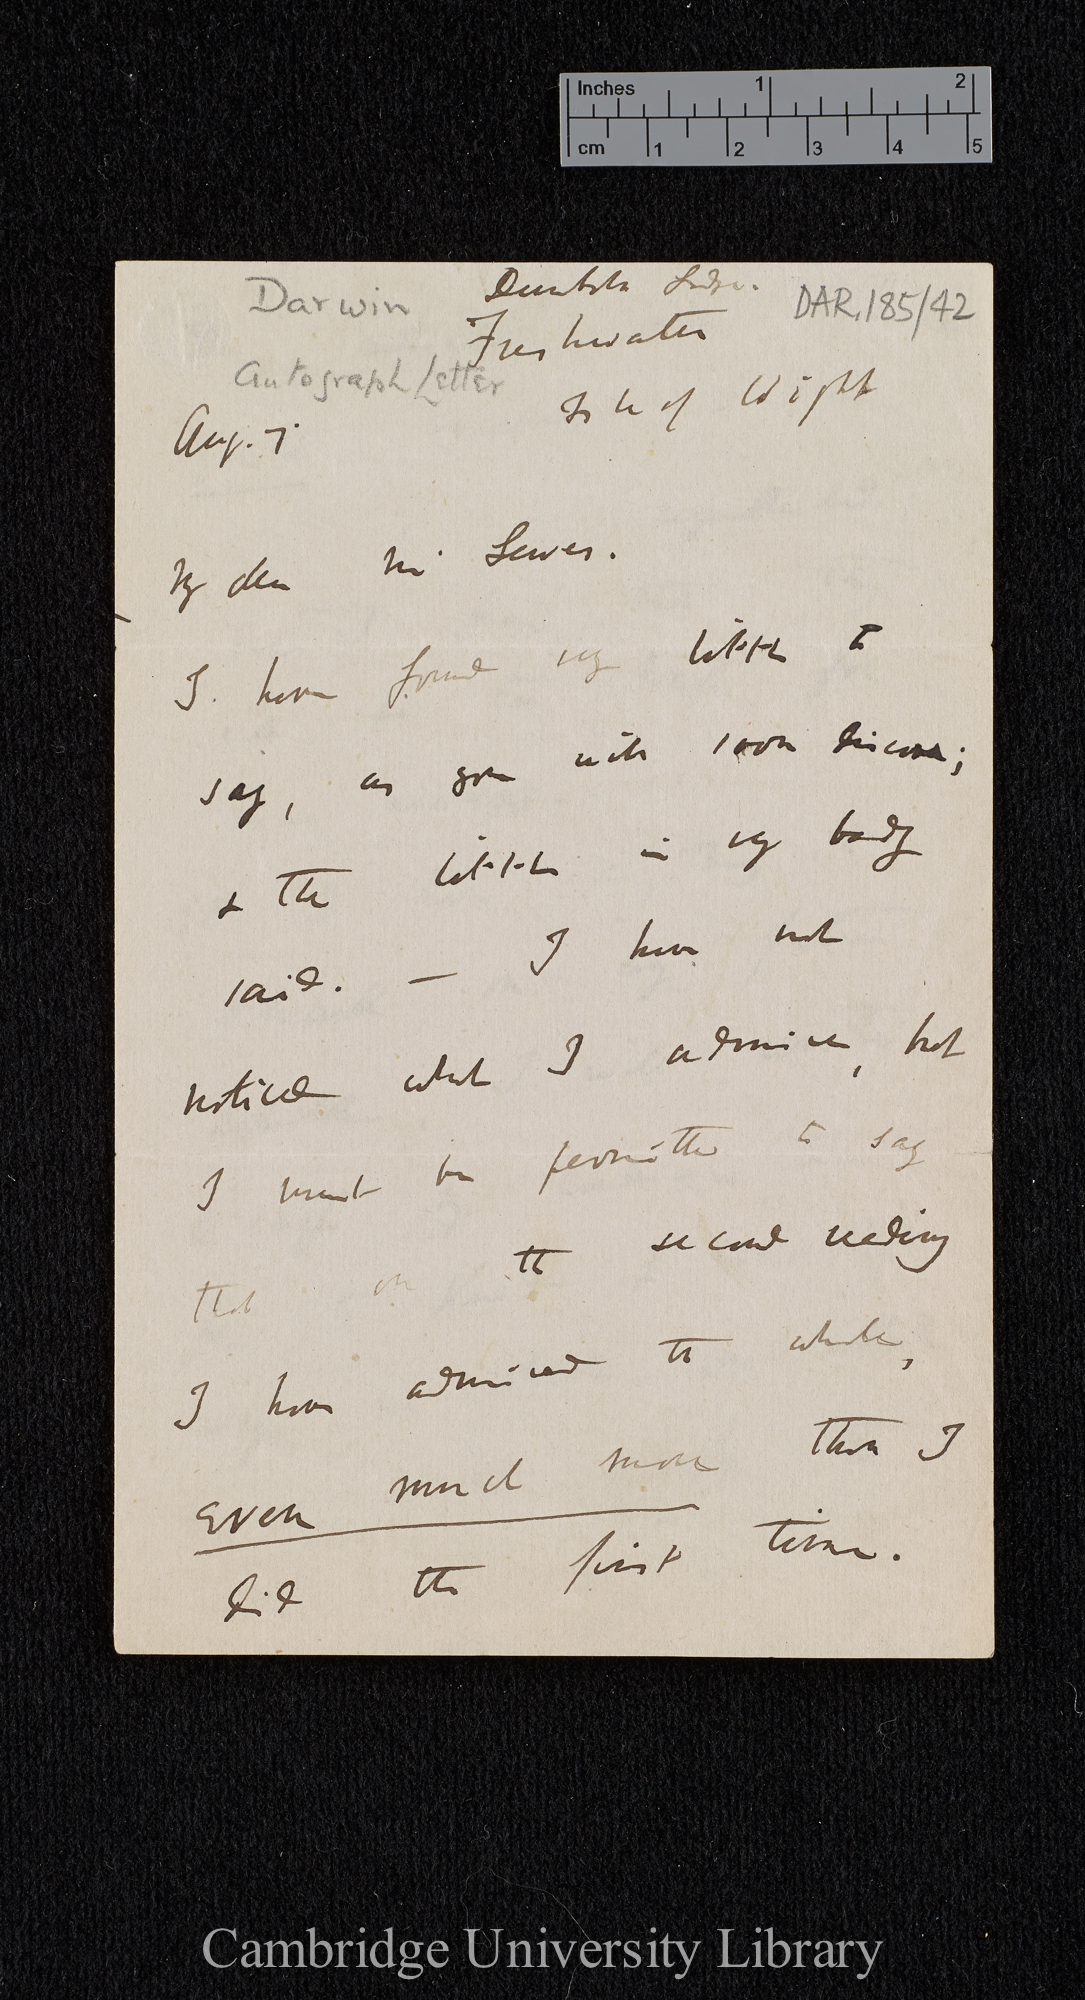 Inches 1 2
cm 1 2 3 4 5
Darwin
Dumbola Lodge.
DAR.185/42
Freshwater
Autograph Letter
Isle of Wight
Aug. 7.
My dear Mr Lewes.
I have found very little to
say, as you will soon discover;
& the little is very badly
said. — I have not
noticed what I admire, but
I must be permitted to say
that on the second reading
I have admired the whole,
even much more than I
did the first time.
Cambridge University Library